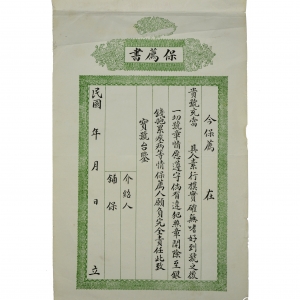 保薦書
今保薦　在
貴號充當　其人素行樸實確無嗜好到號之後
一切號章情愿遵守倘有違犯照章開除至銀
錢拖累疾病等情保薦人願負完全責任此致
寶號台鑒
介紹人
鋪保
民國　年　月　日　立